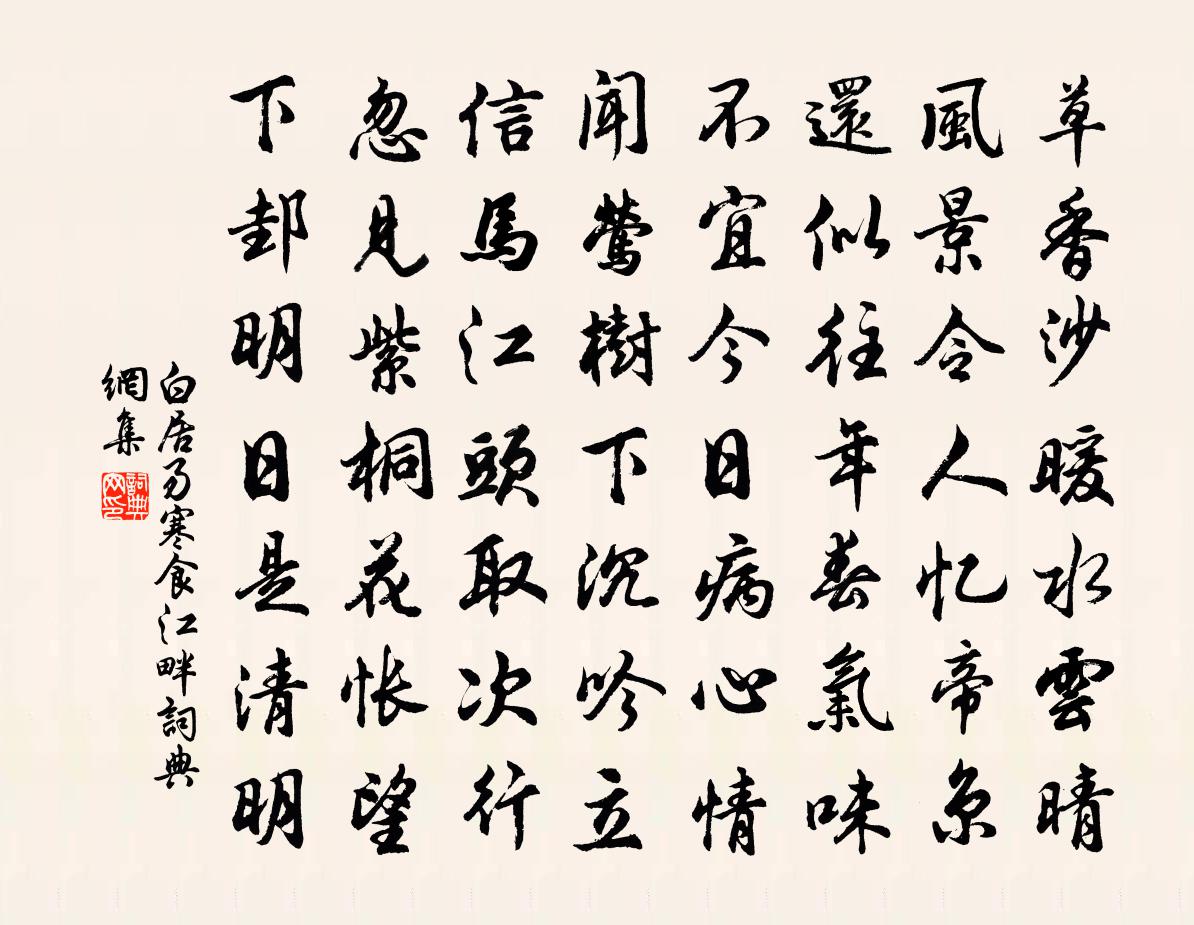 草香沙暖水雲晴
風景令人忆帝京
還似往年春氣味
不宜今日病心情
闻鶯樹下沉吟立
信馬江頭取次行
忽見紫桐花怅望
下邽明日是清明
白居易寒食江畔詞典
網集
詞典
网印